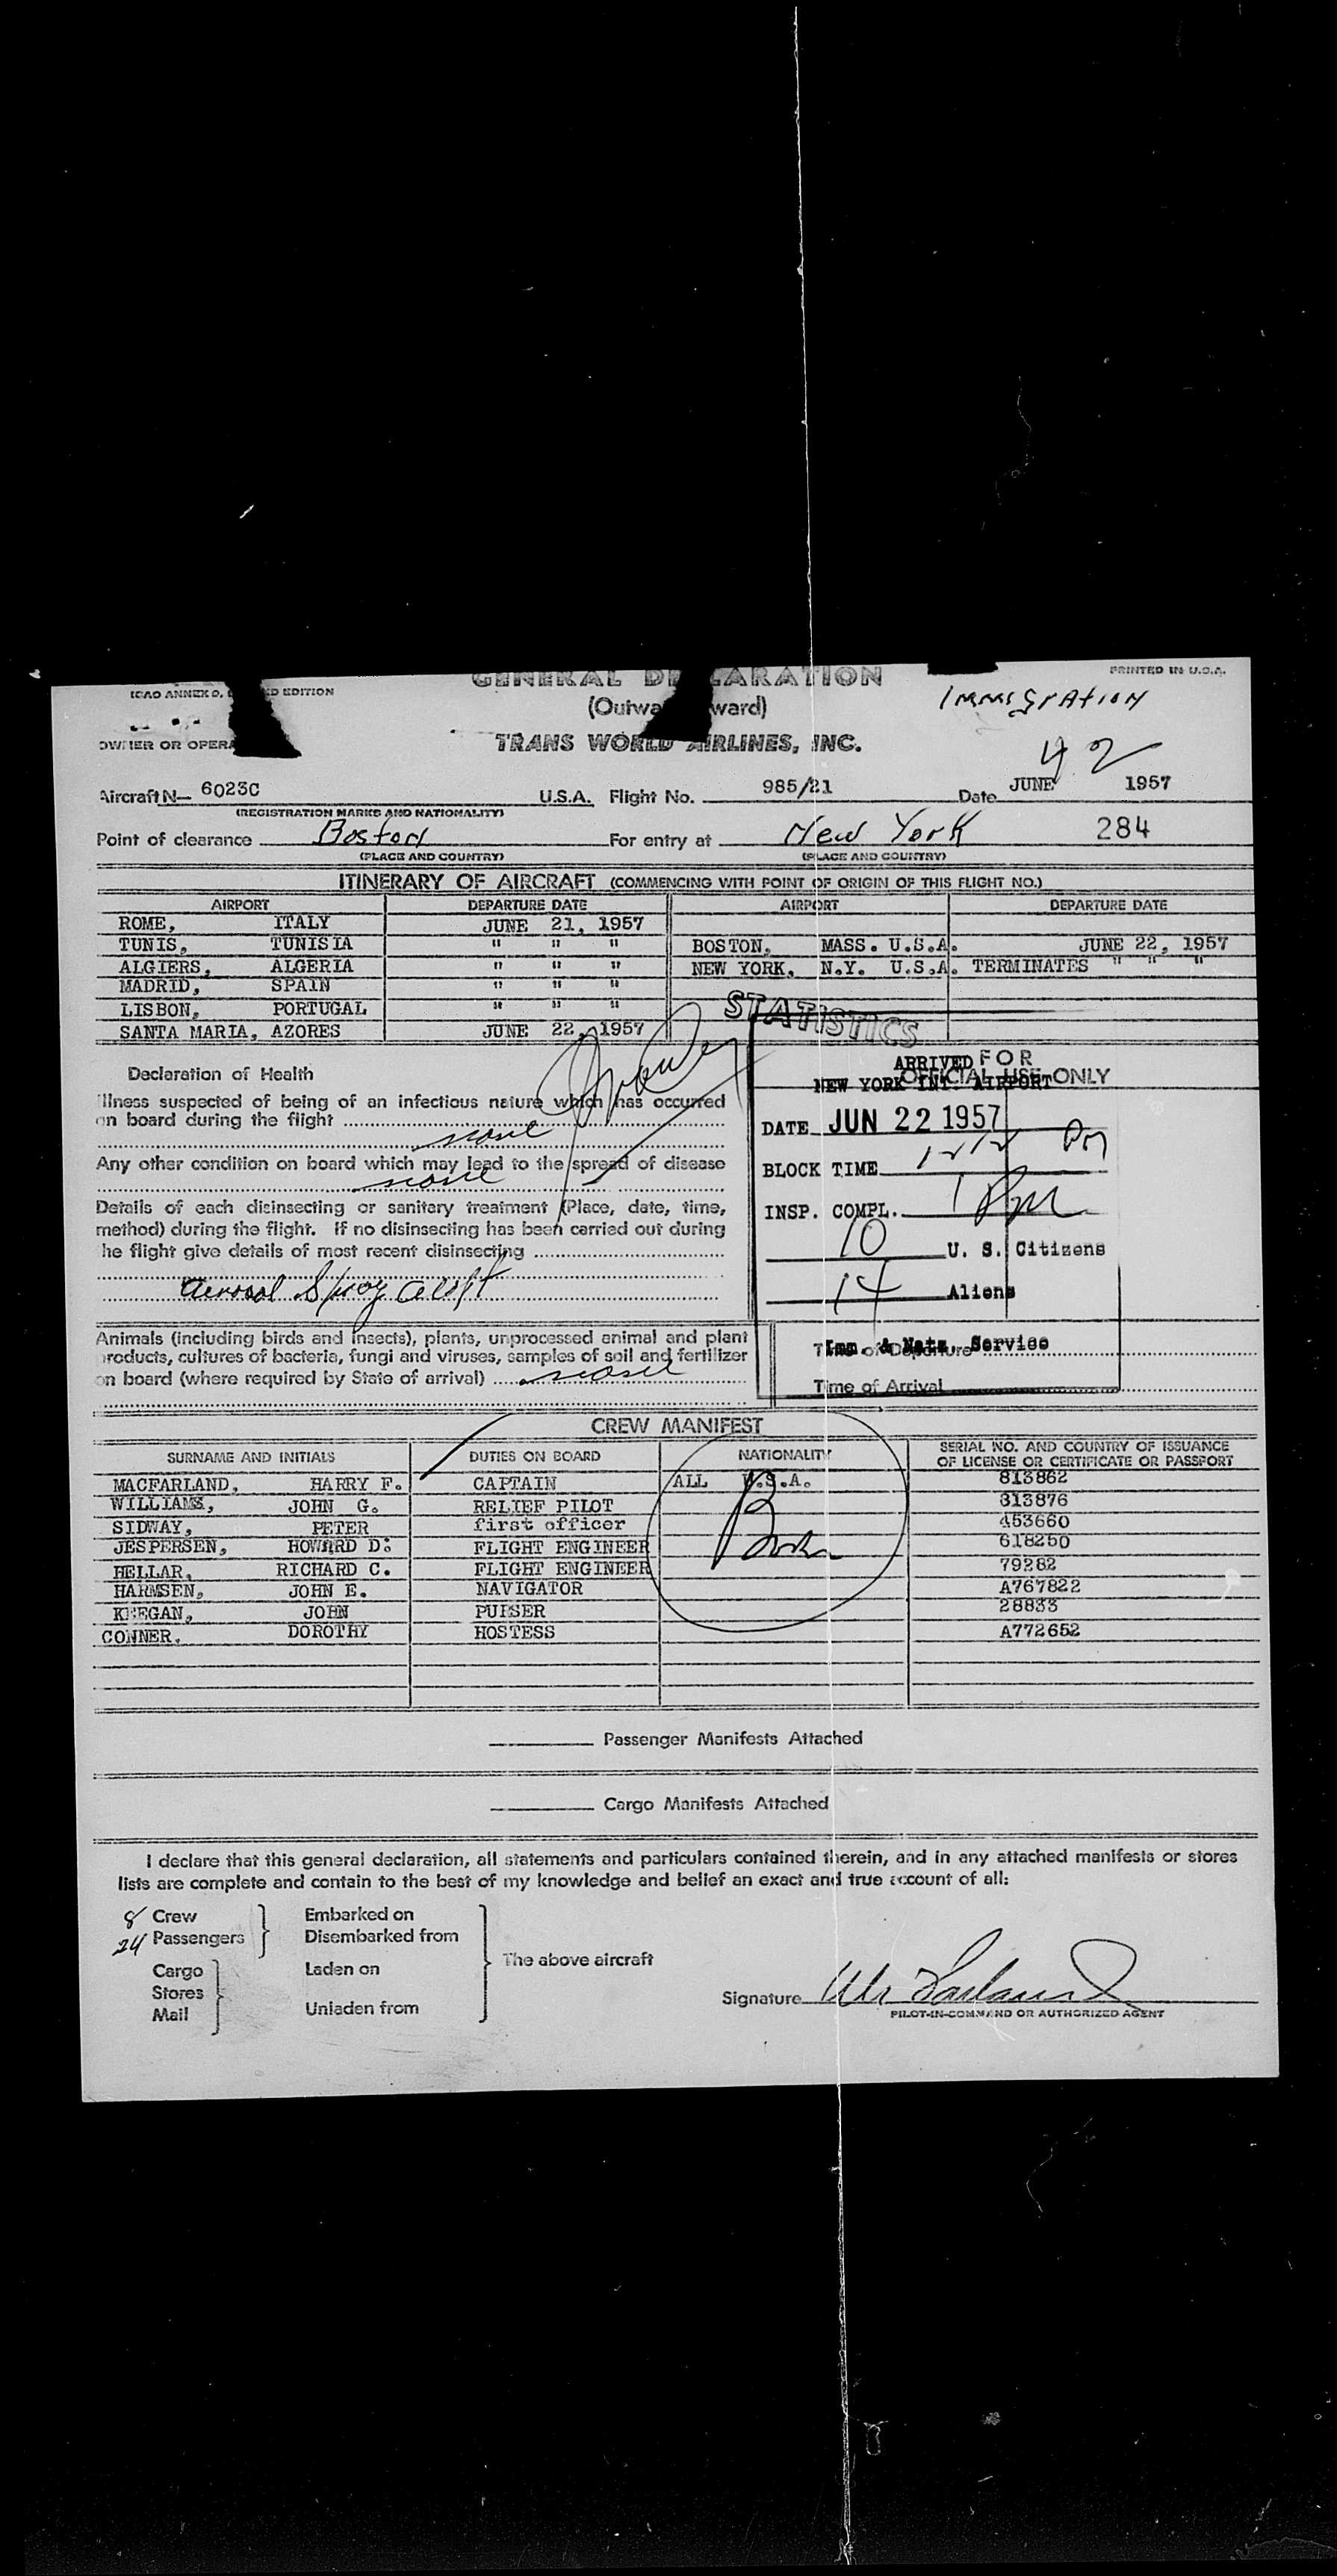 ICAO ANNEX 9, ED EDITION
GENERAL DECLARATION
PRINTED IN U.S.A.
(Outwa ward)
IMMIGRATION
OWNER OR OPERA
TRANS WORLD AIRLINES, INC.
42
Aircraft N— 6023C U.S.A. Flight No. 985/21 Date JUNE 1957
(REGISTRATION MARKS AND NATIONALITY)
Point of clearance Boston For entry at New York 284
(PLACE AND COUNTRY) (PLACE AND COUNTRY)
ITINERARY OF AIRCRAFT (COMMENCING WITH POINT OF ORIGIN OF THIS FLIGHT NO.)
AIRPORT DEPARTURE DATE AIRPORT DEPARTURE DATE
ROME, ITALY JUNE 21, 1957
TUNIS, TUNISIA " " " BOSTON, MASS. U.S.A. JUNE 22, 1957
ALGIERS, ALGERIA " " " NEW YORK, N.Y. U.S.A. TERMINATES " " "
MADRID, SPAIN " " "
LISBON, PORTUGAL " " "
SANTA MARIA, AZORES JUNE 22, 1957
STATISTICS
Declaration of Health
Illness suspected of being of an infectious nature which has occurred
on board during the flight none
Any other condition on board which may lead to the spread of disease
none
Details of each disinsecting or sanitary treatment (Place, date, time,
method) during the flight. If no disinsecting has been carried out during
he flight give details of most recent disinsecting
aerosol Spray aloft
FOR
OFFICIAL USE ONLY
ARRIVED
NEW YORK INT. AIRPORT
DATE JUN 22 1957
BLOCK TIME 1212 PM
INSP. COMPL. 1 PM
10 U. S. Citizens
14 Aliens
Imm. & Natz. Service
Time of Departure
Time of Arrival
Animals (including birds and insects), plants, unprocessed animal and plant
products, cultures of bacteria, fungi and viruses, samples of soil and fertilizer
on board (where required by State of arrival) none
CREW MANIFEST
SURNAME AND INITIALS DUTIES ON BOARD NATIONALITY SERIAL NO. AND COUNTRY OF ISSUANCE
OF LICENSE OR CERTIFICATE OR PASSPORT
MACFARLAND, HARRY F. CAPTAIN ALL U.S.A. 813862
WILLIAMS, JOHN G. RELIEF PILOT 313876
SIDWAY, PETER first officer 453660
JESPERSEN, HOWARD D: FLIGHT ENGINEER 618250
HELLAR, RICHARD C. FLIGHT ENGINEER 79282
HARMSEN, JOHN E. NAVIGATOR A767822
KEEGAN, JOHN PURSER 28833
CONNER, DOROTHY HOSTESS A772652
Passenger Manifests Attached
Cargo Manifests Attached
I declare that this general declaration, all statements and particulars contained therein, and in any attached manifests or stores
lists are complete and contain to the best of my knowledge and belief an exact and true account of all:
8 Crew
24 Passengers
Embarked on
Disembarked from
Cargo
Stores
Mail
Laden on
Unladen from
The above aircraft
Signature
PILOT-IN-COMMAND OR AUTHORIZED AGENT